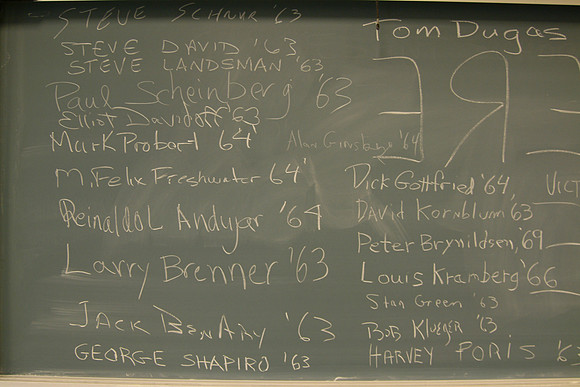 STEVE SCHNUR '63
STEVE DAVID '63
STEVE LANDSMAN '63
Paul Scheinberg '63
Elliot Davidoff '63
Mark Probart 64'
M. Felix Freshwater 64'
Reinaldo L Andujar '64
Larry Brenner '63
JACK BENARY '63
GEORGE SHAPIRO '63
Alan Ginsberg '64
Tom Dugas
ERE
Dick Gottfried '64
VICT
David Kornblum '63
Peter Brynildsen, '69
Louis Kramberg '66
Stan Green '63
BOB KLUGER '63
HARVEY PORIS '63